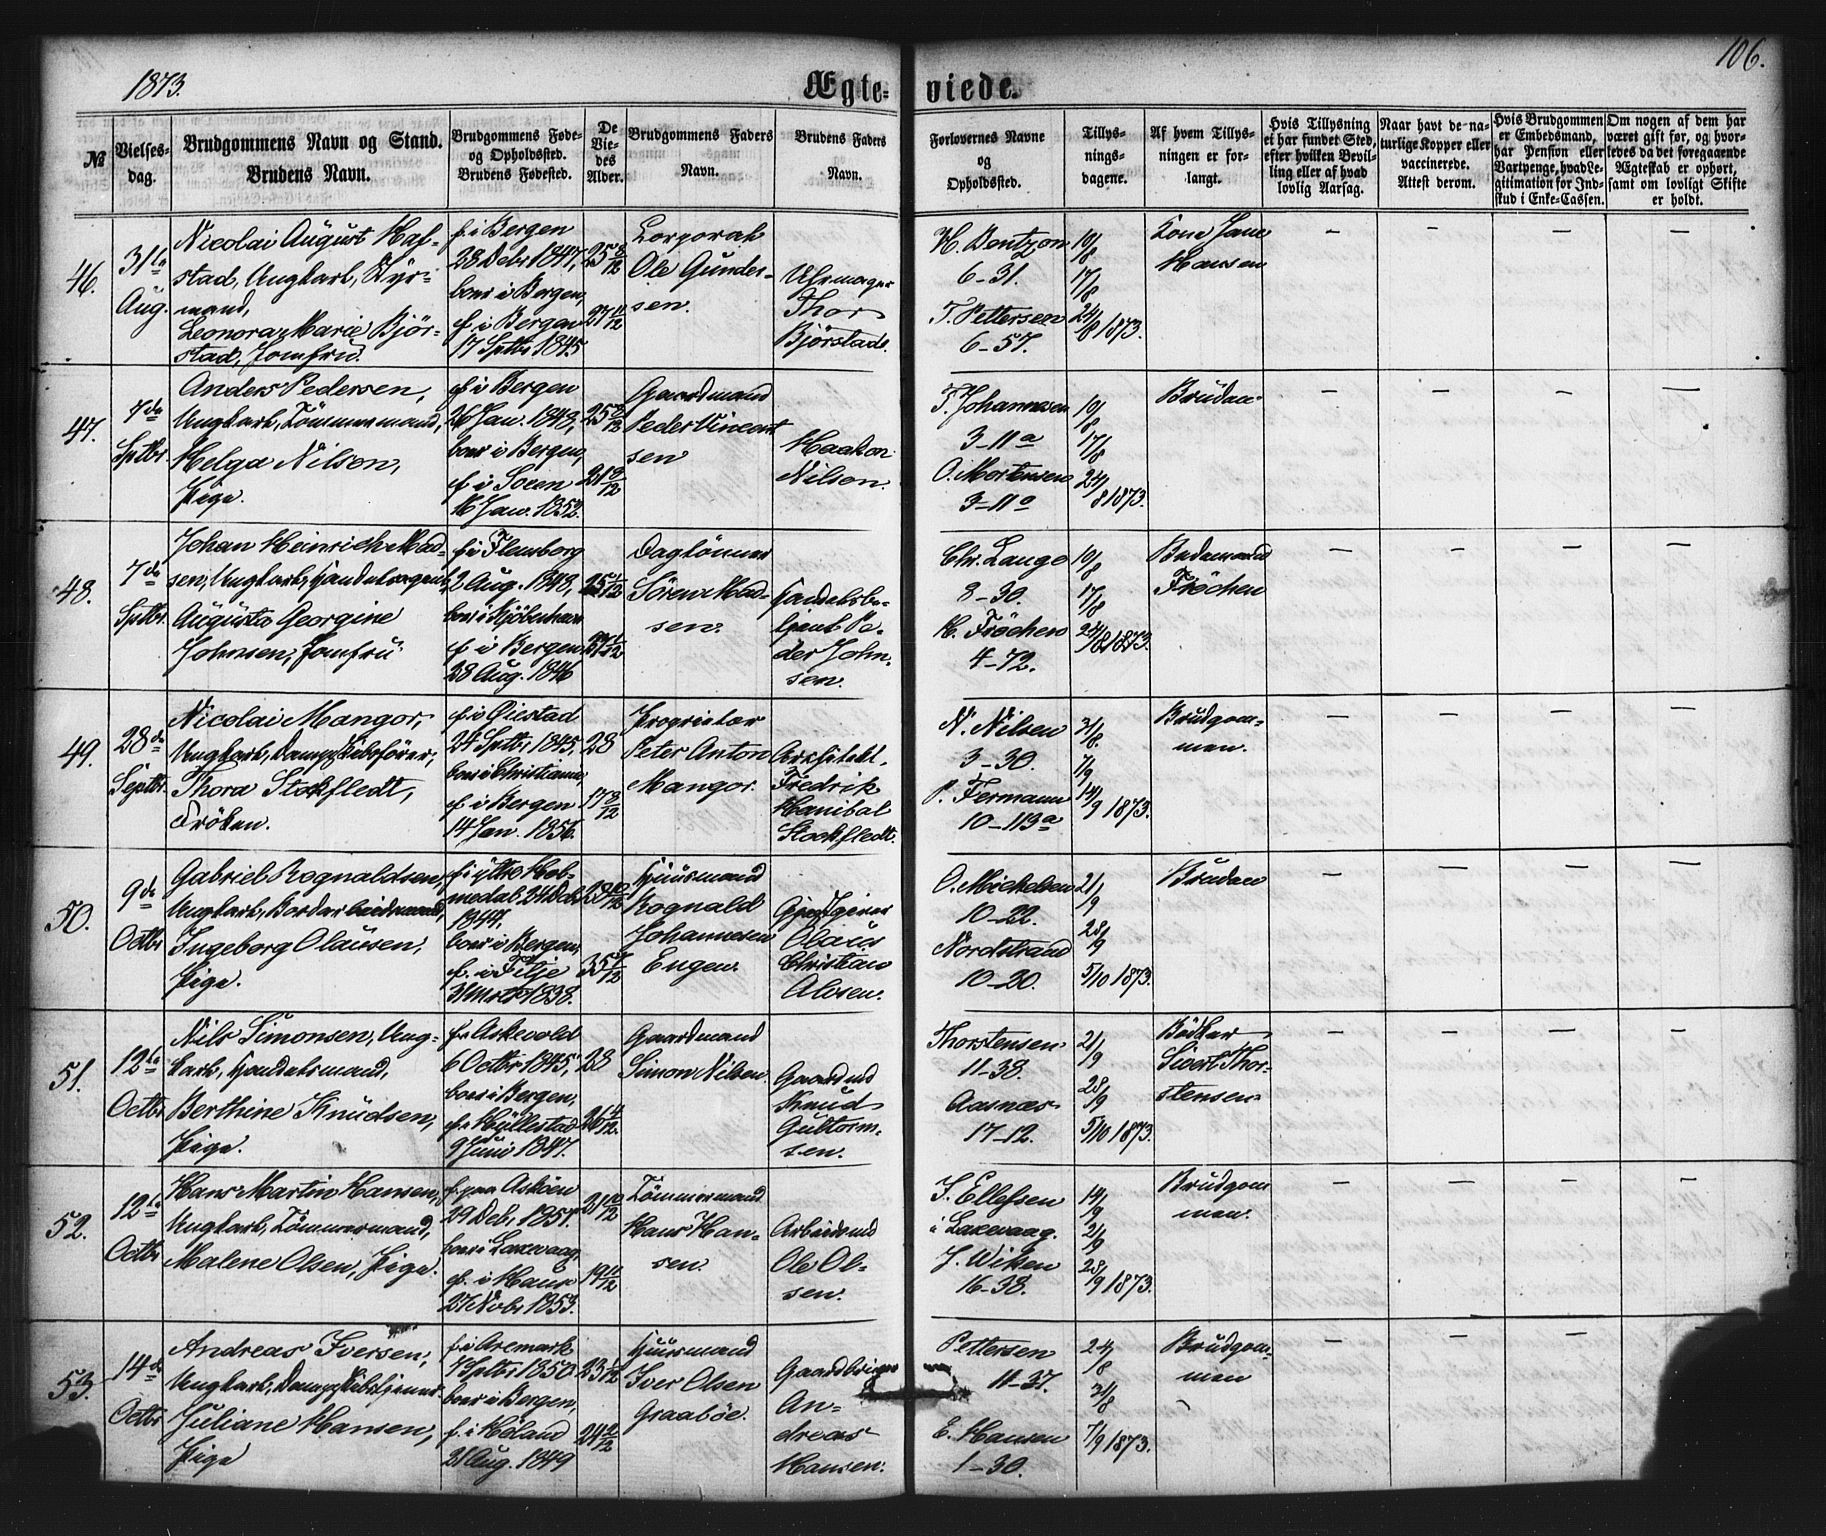 1873.
Ægte-
viede.
106.
№
Vielses-
dag.
Brudgommens Navn og Stand.
Brudens Navn.
Brudgommens Føde-
og Opholdssted.
Brudens Fødested.
De
Vie-
des
Alder.
Brudgommens Faders
Navn.
Brudens Faders
Navn.
Forlovernes Navne
og
Opholdssted.
Tillys-
nings-
dagene.
Af hvem Tillys-
ningen er for-
langt.
Hvis Tillysning
ei har fundet Sted,
efter hvilken Bevil-
ling eller af hvad
lovlig Aarsag.
Naar havt de na-
turlige Kopper eller
vaccinerede.
Attest derom.
Hvis Brudgommen
er Embedsmand,
har Pension eller
Vartpenge, hvad Le-
gitimation for Ind-
skud i Enke-Cassen.
Om nogen af dem har
været gift før, og hvor-
ledes da det foregaaende
Ægteskab er ophørt,
samt om lovligt Skifte
er holdt.
46.
31te
Aug.
Nicolai August Haf-
stad, Ungkarl, Styr-
mand,
Leonora Marie Bjør-
stad, Jomfru.
f. i Bergen
28 Debr 1847,
boer i Bergen,
f. i Bergen
17 Sptbr 1845
25 8/12
27 11/12
Corporal
Ole Gunder-
sen.
Uhrmager
Thor
Bjørstad.
H. Bentzon
6-31.
T. Pettersen
6-57.
10/8
17/8
24/8 1873.
Kone Jane
Hansen
47.
7de
Sptbr.
Anders Pedersen,
Ungkarl, Tømmermand,
Helga Nilsen,
Pige.
f. i Bergen
26 Jan. 1848,
boer i Bergen,
f. i Soren
16 Jan. 1852.
25 8/12
21 8/12
Gaardmand
Peder Vincent
sen
Haakon
Nilsen.
T. Johannesen
3-11a
O. Mortensen
3-11a
10/8
17/8
24/8 1873.
Bruden
48.
7de
Sptbr.
Johan Heinrich Mad-
sen, Ungkarl, Handelsagent,
Augusta Georgine
Johnsen, Jomfru
f. i Flensborg
2 Aug. 1848,
boer i Kjøbenhavn
f. i Bergen
28 Aug. 1846
25 1/12
27 1/12
Daglønner
Søren Mad-
sen.
Handelsbe-
tjent Pe-
der John-
sen.
Chr. Lange
8-30.
H. Frøchen
4-72.
10/8
17/8
24/8 1873.
Bademand
Frøchen
49.
28de
Septbr.
Nicolai Mangor,
Ungkarl, Dampskibsfører,
Thora Stokfledt,
Frøken.
f. i Øiestad
24 Sptbr 1845,
boer i Christiania,
f. i Bergen
14 Jan. 1856.
28
17 8/12
Proprietær
Peter Anton
Mangor.
Arkitekt
Fredrik
Hanibal
Stockfledt.
N. Nilsen
3-30.
P. Fermann
10-119a
31/8.
7/9
14/9 1873.
Brudgom-
men.
50.
9de
Octbr
Gabriel Rognaldsen,
Ungkarl, Bordarbeidsmand,
Ingeborg Olausen,
Pige.
f. i ytre Hol-
medal 24 Deb
1847,
boer i Bergen,
f. i Fitje
31 Marts 1838.
35 7/12
Huusmand
Rognald
Johannesen
Engen.
Gjestgiver
Olaus
Christian
Alvsen.
O. Mickelsen
10-22.
Nordstrand
10-20.
21/9
28/9
5/10 1873.
Bruden
51.
12te
Octbr
Nils Simonsen, Ung-
karl, Handelsmand,
Berthine Knudsen,
Pige.
f. Askevold
6 Octbr 1845,
boer i Bergen,
f. Hyllestad
9 Juni 1847.
28
26 4/12.
Gaardmand
Simon Nilsen.
Gaardmd
Knud
Guttorm-
sen.
Thorstensen
11-38.
Aasnæs
17-12.
21/9
28/9
5/10 1873.
Bødker
Sivert Thor-
stensen
52.
12te
Octbr
Hans Martin Hansen,
Ungkarl, Tømmermand,
Malene Olsen, Pige.
f. paa Askøen
29 Deb, 1851.
boer i Laxevaag
f. i Haus
27 Nobr 1853.
21 10/12
19 11/12
Tømmermand
Hans Han-
sen.
Arbeidsmd
Ole Ol-
sen.
S. Ellefsen
i Laxevaag.
J. Wiken
16-38.
14/9
21/9
28/9 1873.
Brudgom
men.
53.
14de
Octbr
Andreas Iversen,
Ungkarl, Dampskibstjener
Juliane Hansen,
Pige
f. i Aremark
7 Sptbr 1850
boer i Bergen,
f. i Høland
21 Aug. 1849
23 1/12
24 2/12
Huusmand
Iver Olsen
Graabøe.
Gaardbruger
An-
dreas
Hansen.
Pettersen
11-37.
E. Hansen
1-30.
24/8
31/8
7/9 1873.
Brudgom-
men